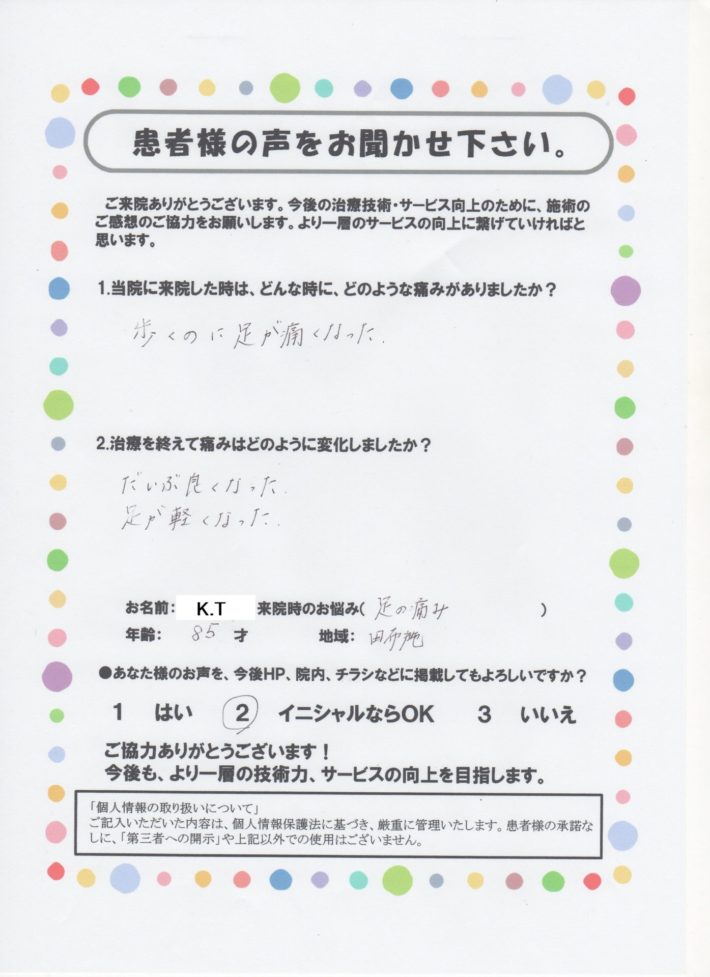 患者様の声をお聞かせ下さい。
ご来院ありがとうございます。今後の治療技術・サービス向上のために、施術の
ご感想のご協力をお願いします。より一層のサービスの向上に繋げていければと
思います。
1.当院に来院した時は、どんな時に、どのような痛みがありましたか?
歩くのに足が痛くなった.
2.治療を終えて痛みはどのように変化しましたか?
だいぶ良くなった.
足が軽くなった.
お名前: K.T 来院時のお悩み( 足の痛み )
年齢: 85 才 地域:
●あなた様のお声を、今後HP、院内、チラシなどに掲載してもよろしいですか?
1 はい 2 イニシャルならOK 3 いいえ
ご協力ありがとうございます!
今後も、より一層の技術力、サービスの向上を目指します。
「個人情報の取り扱いについて」
ご記入いただいた内容は、個人情報保護法に基づき、厳重に管理いたします。患者様の承諾な
しに、「第三者への開示」や上記以外での使用はございません。